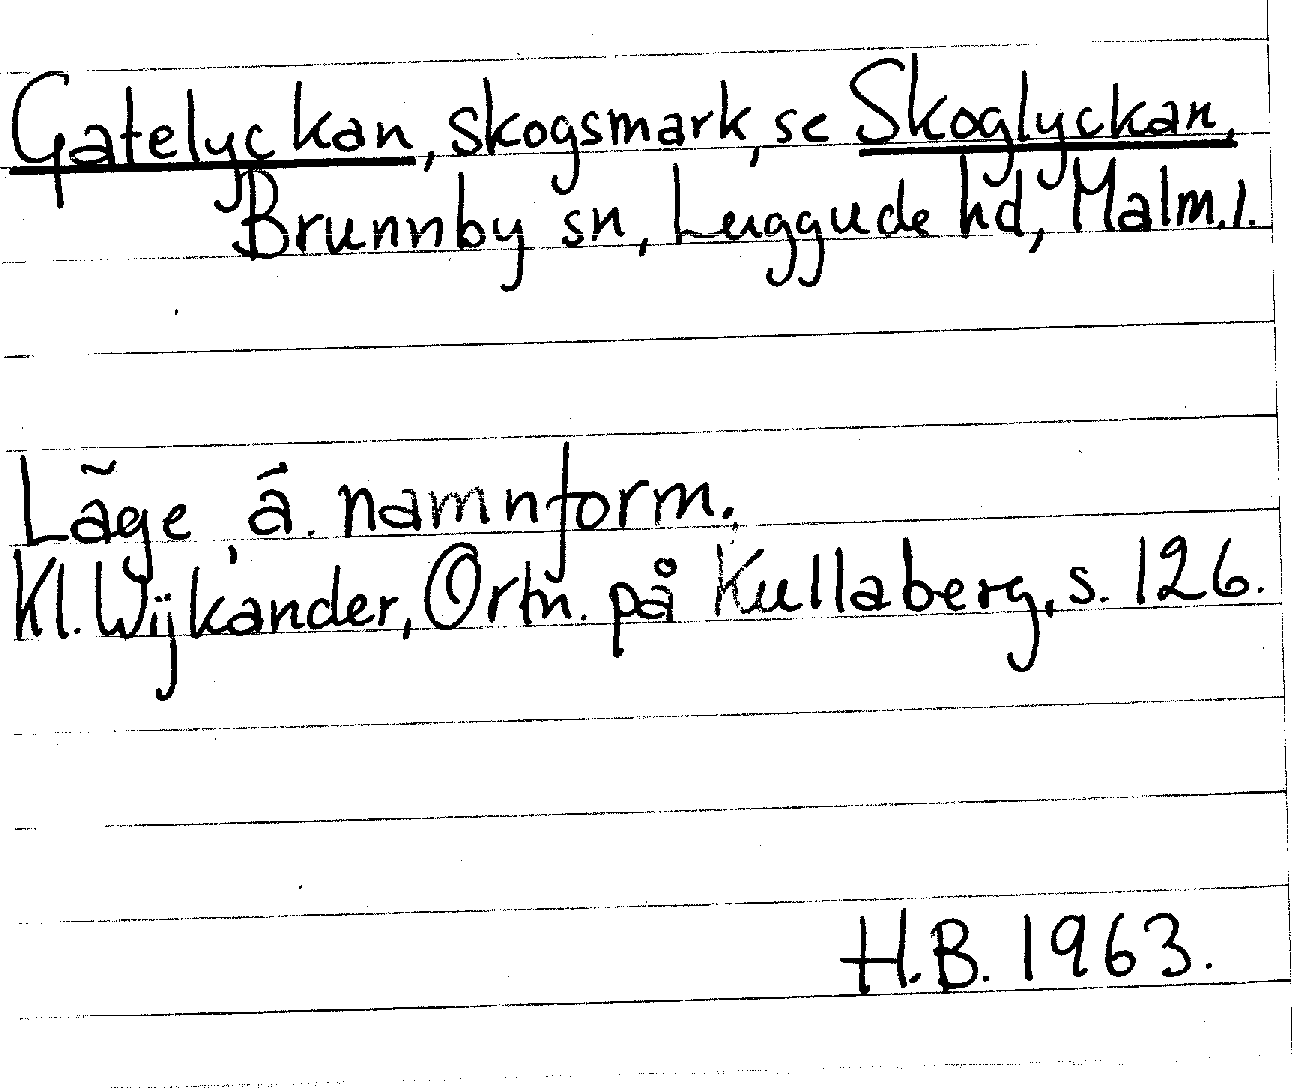 Gatelyckan, skogsmark, se Skoglyckan,
Brunnby sn, Luggude hd, Malm. l.
Läge, ä. namnform.
Kl. Wijkander, Ortn. på Kullaberg, s. 126.
H.B. 1963.